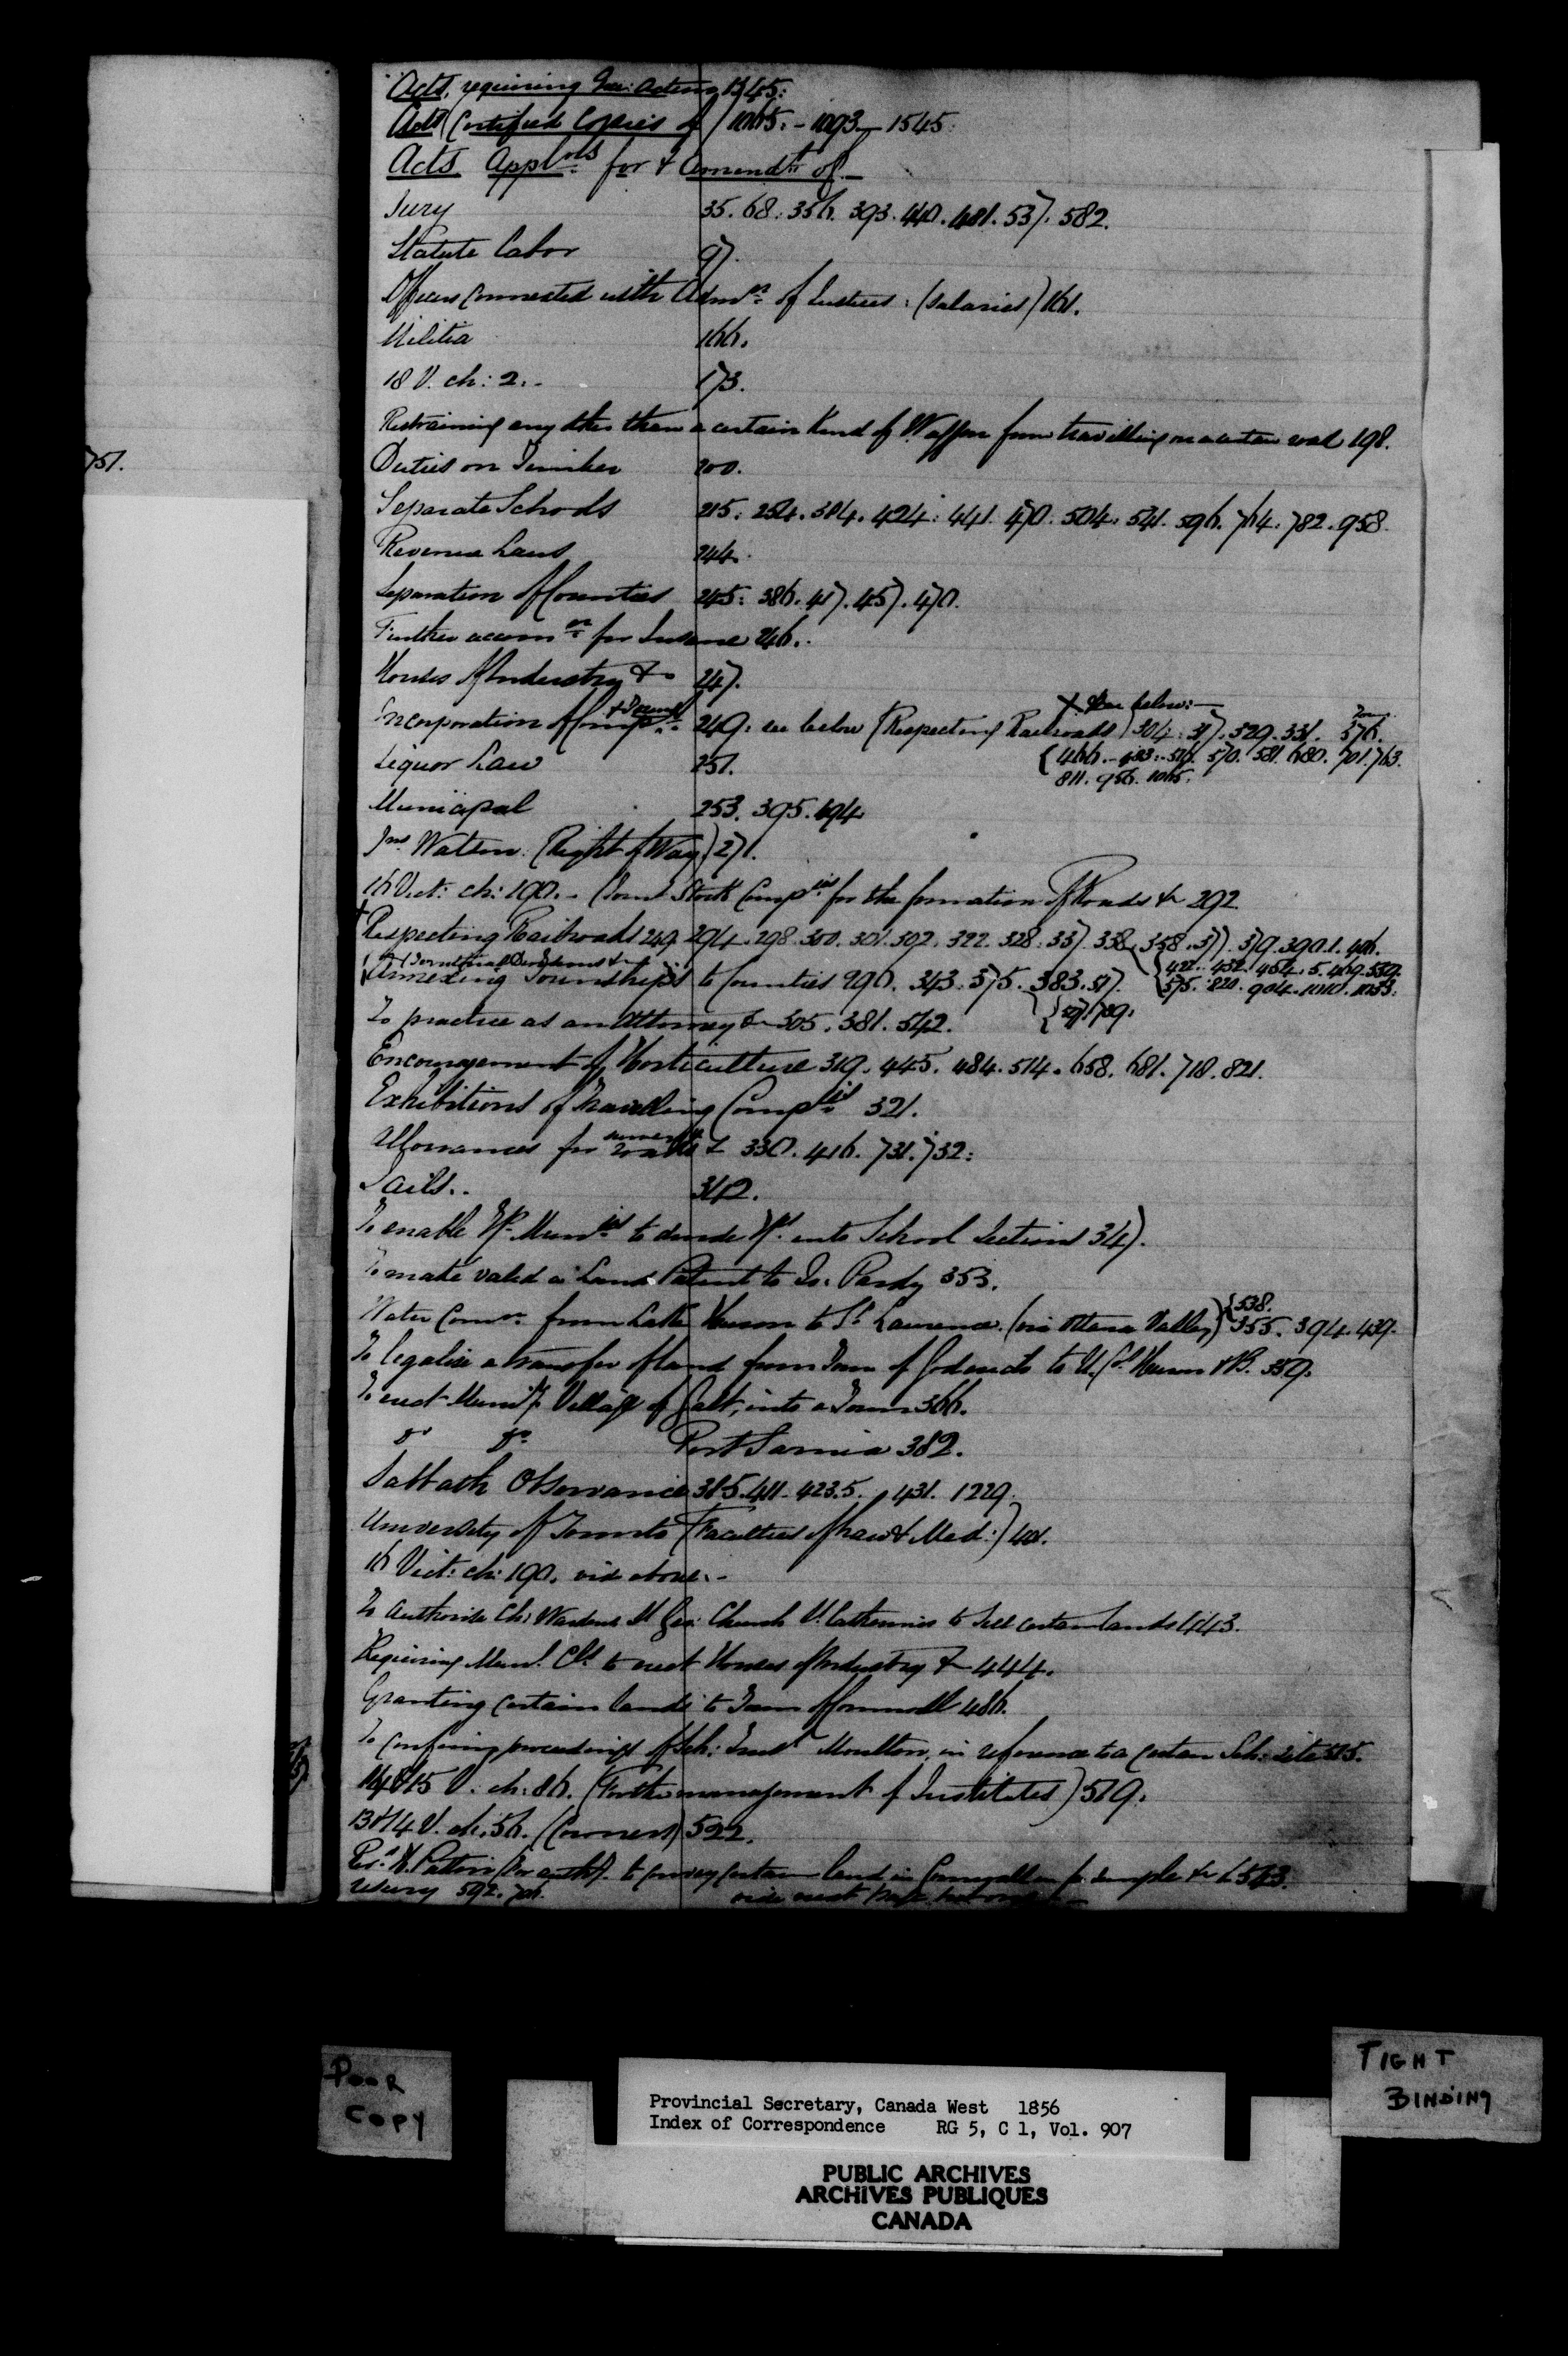 751.
Acts, requiring Gov: action 1545:
Acts (Certified Copies of) 1065. - 1093 - 1545.
Acts Appl.ns for & Amendt. of -
Jury 35. 68. 356. 393. 440. 481. 537. 582.
Statute Labor 97.
Officers connected with Admn. of Justice: (Salaries) 161.
Militia 166.
18 V. ch: 2. - 173.
Restraining any other than a certain kind of Waggon from travelling on a certain road 198.
Duties on Timber 200.
Separate Schools 215. 254. 384. 424. 441. 470. 504. 541. 596. 764. 782. 958.
Revenue Laws 244.
Separation of Counties 245. 386. 417. 457. 470.
Further accomn. for Insane 246.
Houses of Industry &c 247.
X See below: -
Incorporation of Comps. & Towns 249: see below (Respecting Railroads) 304. 317. 329. 331. 376.
Liquor Law 251. {466. 570. 581. 680. 701. 763.
811. 956. 1065.
Municipal 253. 395. 694
Jno. Watson. (Right of Way) 271.
16 Vict: ch: 190. - (Joint Stock Compies. for the formation of Roads &c 292.
X Respecting Railroads 249. 294. 298. 300. 301. 302. 322. 328. 337. 338. 358. 377. 379. 390.1. 406.
{422. 432. 464.5. 469. 539.
(or Territorial Divisions &c)
Annexing Townships to Counties 290. 343. 375. 383. 517. {575. 820. 904. 1010. 1033.
To practice as an Attorney &c 305. 381. 542.
Encouragement of Horticulture 319. 445. 484. 514. 658. 681. 718. 821.
Exhibitions of Travelling Compies. 321.
Allowances for roads & 330. 416. 731. 732.
Jails.. 342.
To enable Tp. Munies. to divide Tps. into School Sections 347.
To make valid a Land Patent to Is: Pardy 353.
Water Comn. from Lake Huron to St. Lawrence. (via Ottawa Valley) {538. 355. 394. 439.
To legalize a transfer of land from Town of Goderich to U. Cos. Huron & B. 359.
To erect Muniy. Village of Galt, into a Town 366.
do do Port Sarnia 382.
Sabbath Observance 385. 411. 423.5. 431. 1229.
University of Toronto (Faculties of Law & Med:) 401.
16 Vict: ch: 190. vide above. -
To Authorise Ch: Wardens St. Geo: Church St. Catherines to sell certain lands 443.
Requiring Munl. Cls. to erect Houses of Industry &c 444.
Granting certain lands to Town of Cornwall 486.
To confirm proceedings of Sch: Trust. Moulton, in reference to a certain Sch: site 515.
14 & 15 V. ch: 86. (For the management of Institutes) 519.
13 & 14 V. ch. 56. (Coroners) 522.
to convey certain land in Cornwall in fee simple &c 563.
Usury 592. 706. vide next page but one -
POOR
COPY
TIGHT
BINDING
Provincial Secretary, Canada West 1856
Index of Correspondence RG 5, C 1, Vol. 907
PUBLIC ARCHIVES
ARCHIVES PUBLIQUES
CANADA